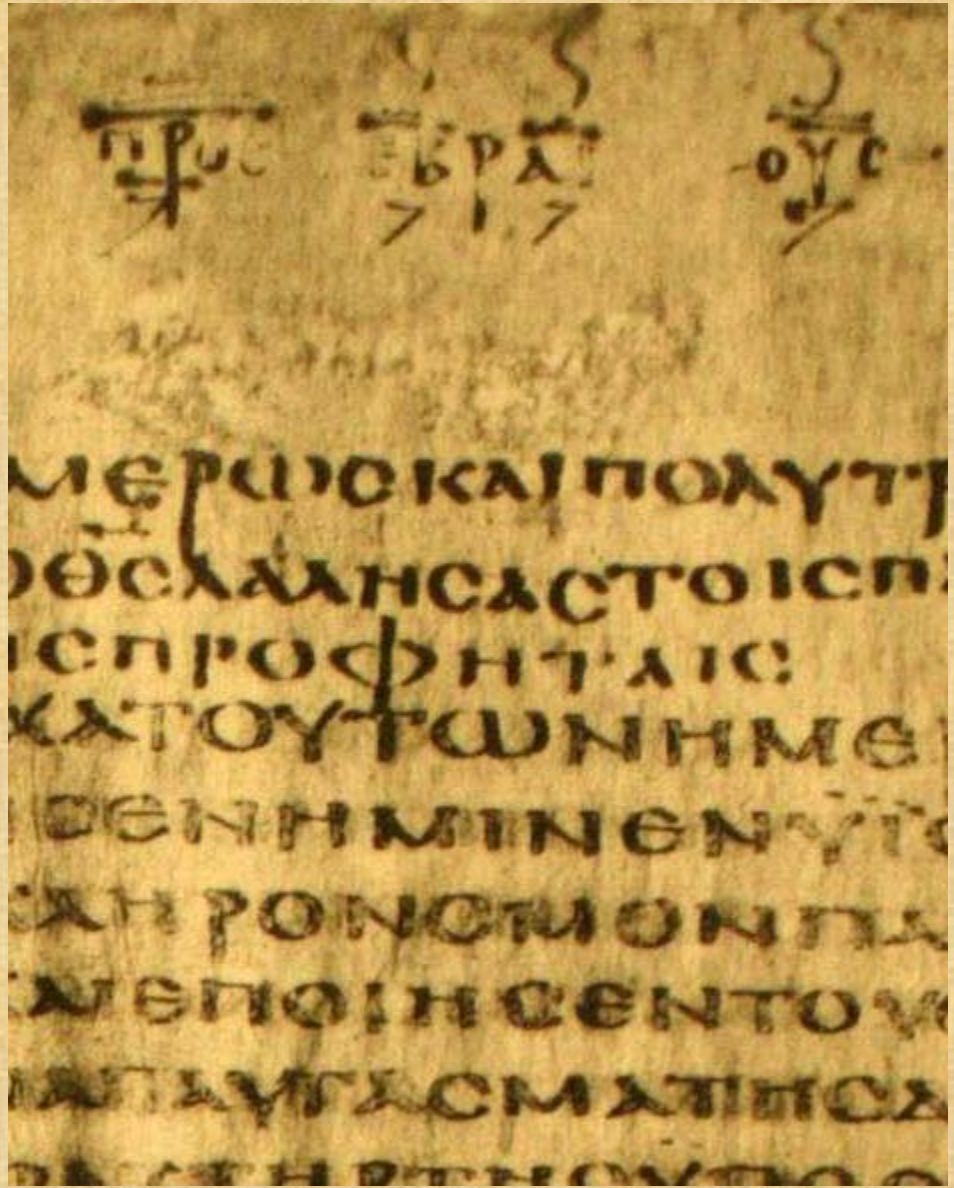 ΠΡΟC ΕΒΡΑΙΟΥC
ΜΕΡΩCΚΑΙΠΟΛΥΤΡ
ΟΘCΛΑΛΗCΑCΤΟΙCΠΑ
ΙCΠΡΟΦΗΤΑΙC
ΧΑΤΟΥΤΩΝΗΜΕ
CΕΝΗΜΙΝΕΝΥΙ
ΚΛΗΡΟΝΟΜΟΝΠΑ
ΚΑΙΕΠΟΙΗCΕΝΤΟΥC
ΑΠΑΥΓΑCΜΑΤΗCΔ